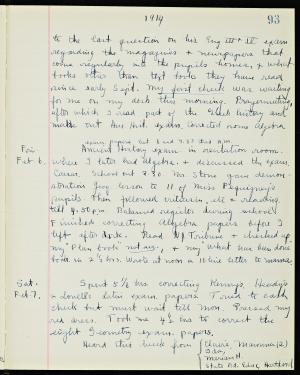 1919
93
to the last question on his Eng III + IV exam
regarding the magazines + newspapers that
come regularly into the pupils' homes, + what
books other than text books they have read
since early Sept. My first check was waiting
for me on my desk this morning.
after which I read part of the Greek history and
made out the Hist. exam, corrected some algebra
exam papers
Fri.
Feb 6.
Ancient history exam in recitation room.
where I later had Algebra + discussed the exam.
Caesar. School out 2.30. Mr Stone gave demon-
stration Geog lesson to 11 of Miss
pupils. Then followed criticism, etc + reading
till 4.50 p.m. Balanced register during school
Finished correcting Algebra papers before I
left after 5 p.m. Read N.Y. Tribune + checked up
my "Plan book" not any, + my "What has been done"
book in 2½ hrs. Wrote at noon a 11 line letter to mamma
Sat.
Feb 7.
Spent 5½ hrs correcting Kenny's,
+ Lowell's Latin exam papers. Tried to cash
check but must wait till Mon. Pressed my
red dress. Took me 4½ hrs to correct the
eight Geometry exam papers.
Heard this week from
Claire, Mamma (2)
Marian H.
State Bd. Educ, Hartford